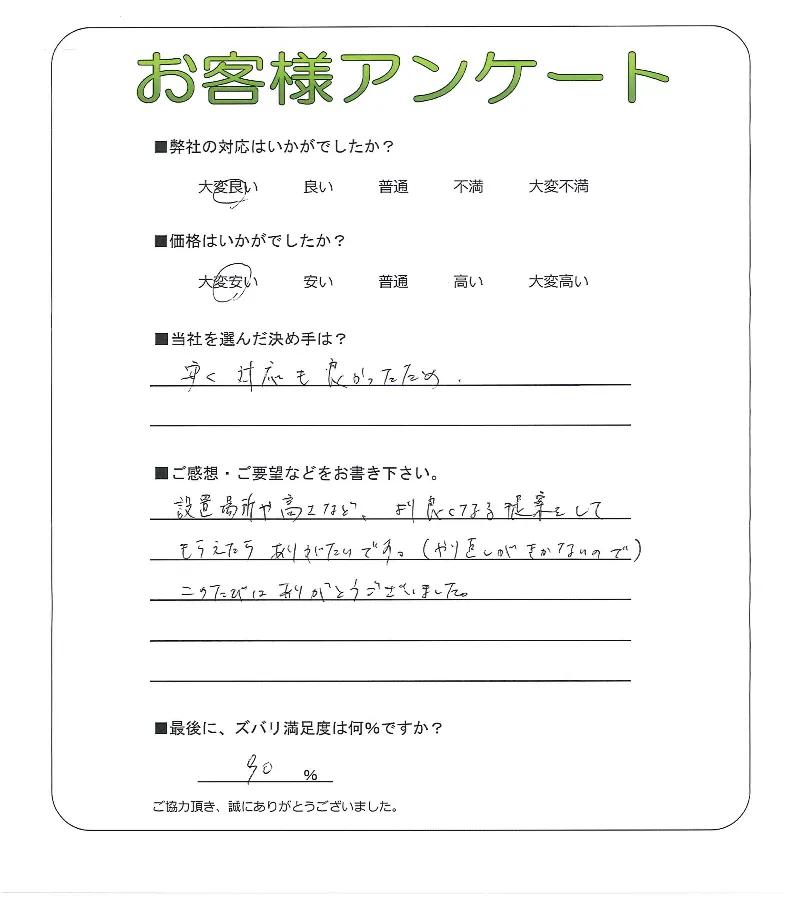 お客様アンケート
■弊社の対応はいかがでしたか？
大変良い 良い 普通 不満 大変不満
■価格はいかがでしたか？
大変安い 安い 普通 高い 大変高い
■当社を選んだ決め手は？
安く対応も良かったため.
■ご感想・ご要望などをお書き下さい。
設置場所や高さなど、より良くなる提案をして
もらえたらありがたいです。(やり直しがきかないので)
このたびはありがとうございました。
■最後に、ズバリ満足度は何%ですか？
90 %
ご協力頂き、誠にありがとうございました。